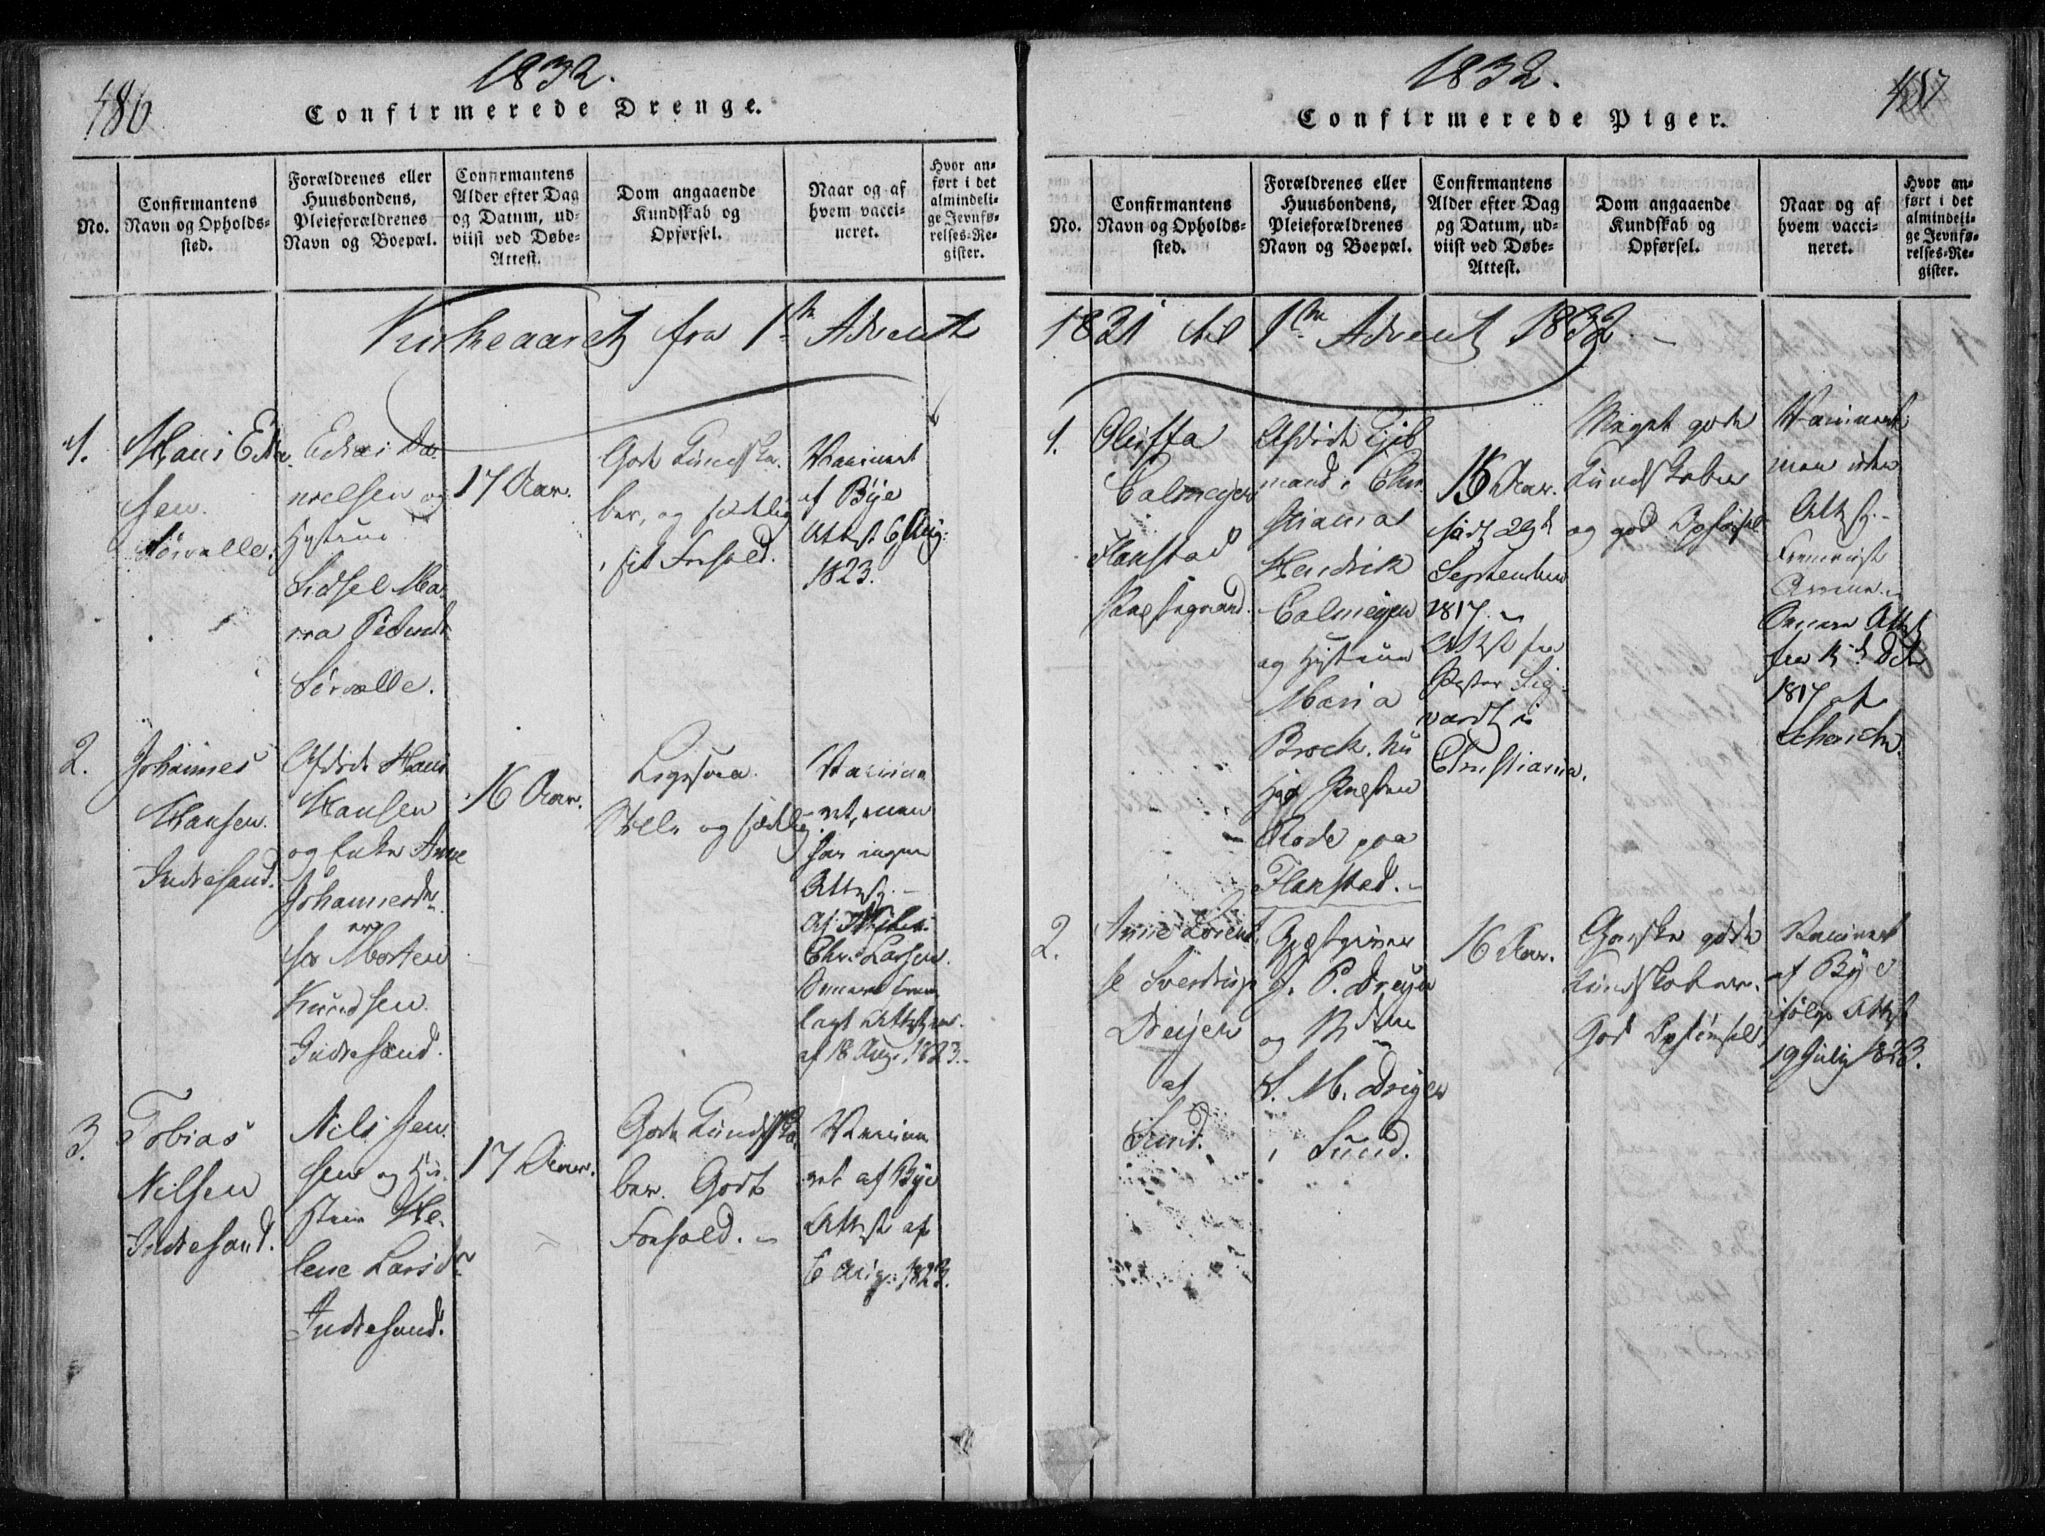 486
1832.
Confirmerede Drenge.
No.
Confirmantens
Navn og Opholds-
sted.
Forældrenes eller
Huusbondens,
Pleieforældrenes
Navn og Boepæl.
Confirmantens
Alder efter Dag
og Datum, ud-
viist ved Døbe-
Attest.
Dom angaaende
Kundskab og
Opførsel.
Naar og af
hvem vacci-
neret.
Hvor an-
ført i det
almindeli-
ge Jevnfø-
relses-Re-
gister.
Kirkeaaret fra 1ste Advent
1.
Hans
sen.
Sørvalle.
og
Hustrue
Sidsel Ma-
Sørvalle.
17 Aar.
Gode Kundska-
ber, og sædelig
i sit Forhold.
Vaccineret
af Bye
Attest 6 Aug.
1823.
2.
Johannes
Hansen.
Indresand.
Afdøde Hans
Hansen
og Enke Anne
Johannesdtr.
hos Morten
Knudsen.
Indresand.
16 Aar.
Ligesaa.
og sædelig
Vaccine-
ret, men
har ingen
Attest.
Chr. Larsen.
lagt Attest
af 18 Aug. 1823.
3.
Tobias
Nilsen
Indresand.
Nils Jen-
sen og Hu-
strue He-
lene Larsdtr
Indresand.
17 Aar.
Gode Kundska-
ber. Godt
Forhold.
Vaccine-
ret af Bye
Attest af
6 Aug. 1823.
1832.
487
Confirmerede Piger.
No.
Confirmantens
Navn og Opholds-
sted.
Forældrenes eller
Huusbondens,
Pleieforældrenes
Navn og Boepæl.
Confirmantens
Alder efter Dag
og Datum, ud-
viist ved Døbe-
Attest.
Dom angaaende
Kundskab og
Opførsel.
Naar og af
hvem vacci-
neret.
Hvor an-
ført i det
almindeli-
ge Jevnfø-
relses-Re-
gister.
1831 til 1ste Advent 1832.
1.
Calmeyer
Flakstad
Præstegaard.
Afdøde Kjøb-
mand i Chri-
stiania
Hendrik
Calmeyer
og Hustrue
Maria
Brock, nu
hos Præsten
Rode paa
Flakstad.
15 Aar.
født 29de
September
1817.
Attest fra
Pastor Sig-
vardt i
Christiania.
Meget gode
Kundskaber
og god Opførsel
Vaccineret
men uden
Attest.
Attest
fra 15de Oct
1817 af
Schenche
2.
Anne Lorent-
se Sverdrup
Dreyer
af
Sund.
Gjæstgiver
J. P. Dreyer
og Mdme
S. M. Dreyer
i Sund.
16 Aar.
Ganske gode
Kundskaber.
God Opførsel
Vaccineret
af Bye
ifølge Attest
19 July 1823.